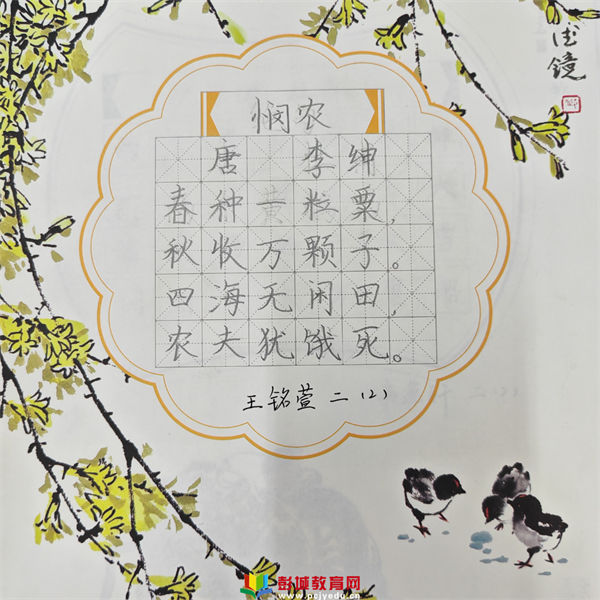 悯农
唐 李绅
春种一粒粟，
秋收万颗子。
四海无闲田，
农夫犹饿死。
王铭萱 二(2)
彭城教育网
www.pcjyedu.cn